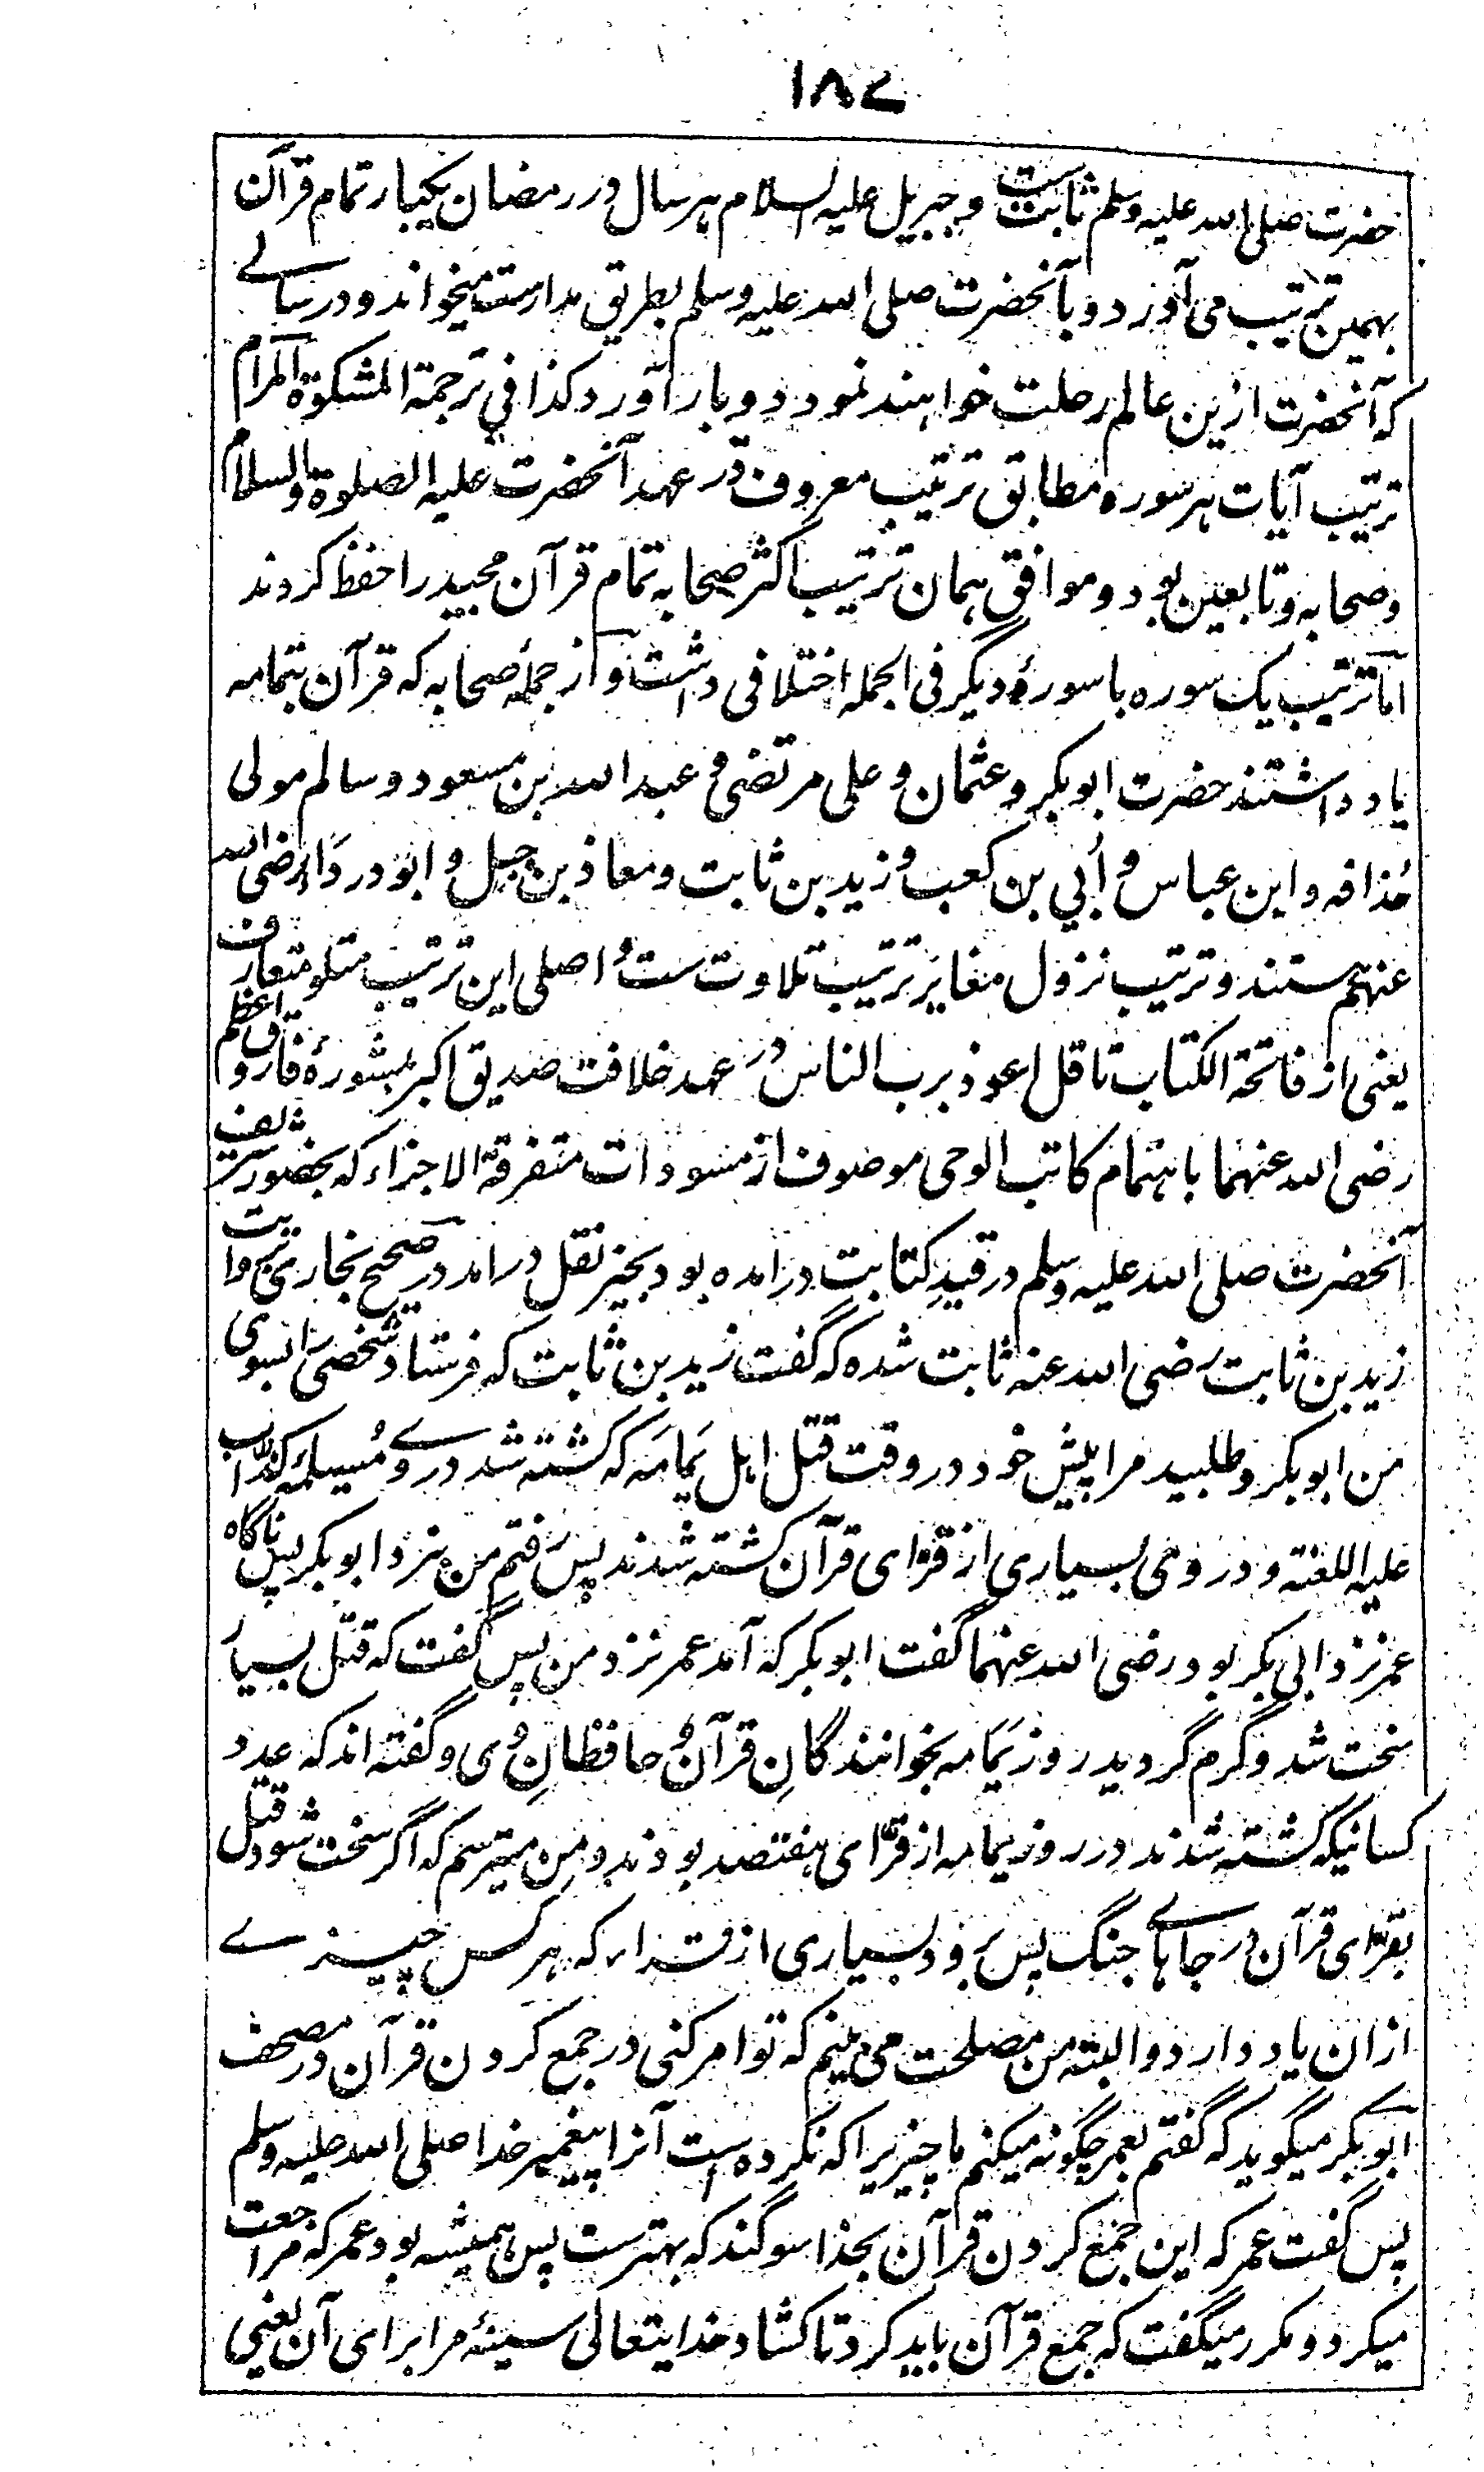 ۱۸۷
حضرت صلی الله علیه وسلم ثابتست و جبریل علیه السلام هر سال در رمضان یکبار تمام قرآن
بهمین ترتیب می آورد و بآنحضرت صلی الله علیه وسلم بطریق مدارست میخواند و در سالے
که آنحضرت ازین عالم رحلت خواهند نمود دو بار آورد کذا في ترجمة المشکوة المرام
ترتیب آیات هر سوره مطابق ترتیب معروف در عهد آنحضرت علیه الصلوة والسلام
و صحابه و تابعین بود و موافق همان ترتیب اکثر صحابه تمام قرآن مجید را حفظ کردند
اما ترتیب یک سوره با سورهٔ دیگر فی الجمله اختلافی داشت و از جملهٔ صحابه که قرآن بتمامه
یاد داشتند حضرت ابوبکر و عثمان و علی مرتضی و عبد الله بن مسعود و سالم مولی
حُذافه و ابن عباس و أبي بن کعب و زید بن ثابت و معاذ بن جبل و ابو درداء رضی الله
عنهم هستند و ترتیب نزول مغایر ترتیب تلاوت ست و اصلی این ترتیب متلو متعارف
یعنی از فاتحة الکتاب تا قل اعوذ برب الناس در عهد خلافت صدیق اکبر بمشورهٔ فاروق اعظم
رضی الله عنهما باهتمام کاتب الوحی موصوف از مسودات متفرقة الاجزاء که بحضور شریف
آنحضرت صلی الله علیه وسلم در قیدِ کتابت درامده بود بحیز نقل درامد در صحیح بخاری بروایت
زید بن ثابت رضی الله عنه ثابت شده که گفت زید بن ثابت که فرستاد شخصی را بسوی
من ابوبکر و طلبید مرا پیش خود در وقت قتل اهل یَمامَه که کشته شد درے و مُسیلمهٔ کذاب
علیه اللعنة و در وی بسیاری از قرّای قرآن کشته شدند پس رفتم من نزد ابوبکر پس ناگاه
عمر نزد ابی بکر بود رضی الله عنهما گفت ابوبکر که آمد عمر نزد من پس گفت که قتل بسیار
سخت شد و گرم گردید روز یَمامه بخوانندگانِ قرآن و حافظانِ وُی و گفته اند که عدد
کسانیکه کشته شدند در روز یمامه از قرّای هفتصد بودند و من میترسم که اگر سخت شود قتل
بقرّای قرآن در جاهاے جنگ پس برود بسیاری از قرآن که هر کس چیزے
ازان یاد دارد و البته من مصلحت می بینم که تو امر کنی در جمع کردن قرآن در مصحف
ابوبکر میگوید که گفتم بعمر چگونه میکنم ما چیزیرا که نکرده است آنرا پیغمبر خدا صلی الله علیه وسلم
پس گفت عمر که این جمع کردن قرآن بخدا سوگند که بهترست پس همیشه بود عمر که مراجعت
میکرد و مکرر میگفت که جمع قرآن باید کرد تا کشاد خدایتعالی سینهٔ مرا برای آن یعنی